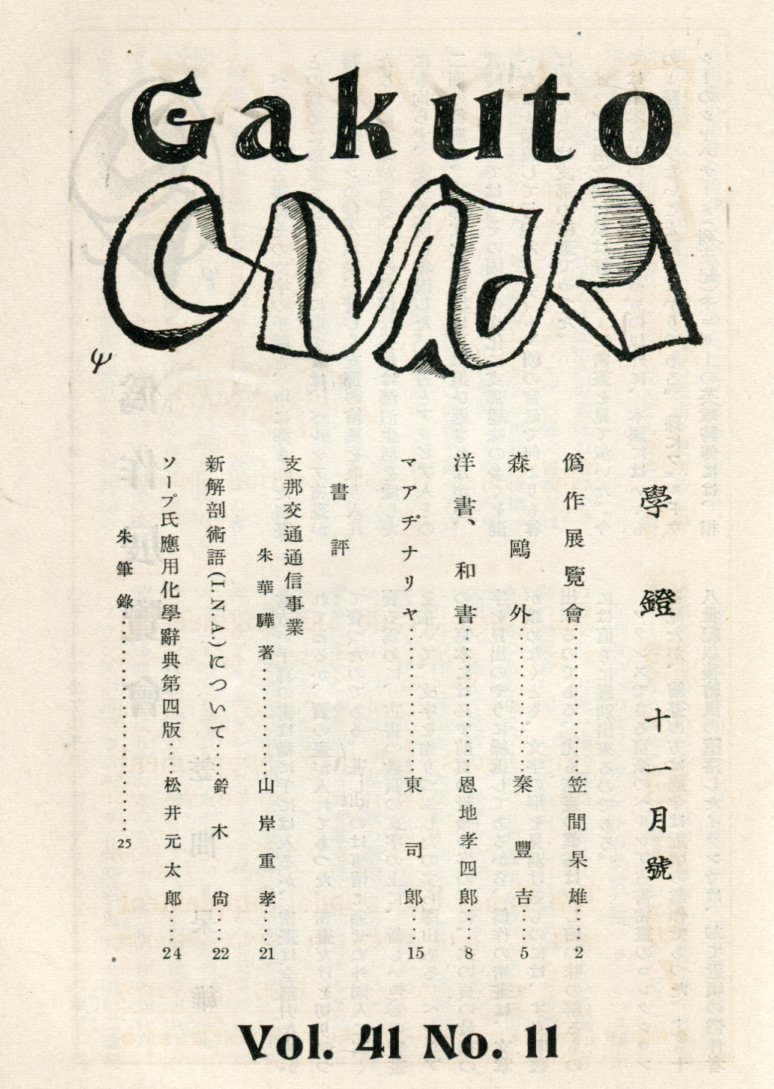 Gakuto
學鐙　十一月號
僞作展覽會……笠間杲雄……2
森鷗外……秦豐吉……5
洋書、和書……恩地孝四郎……8
マアヂナリヤ……東司郎……15
書評
支那交通通信事業
朱華驊著……山岸重孝……21
新解剖術語(I.N.A.)について……鈴木尙……22
ソープ氏應用化學辭典第四版……松井元太郞……24
朱筆錄……25
Vol. 41 No. 11